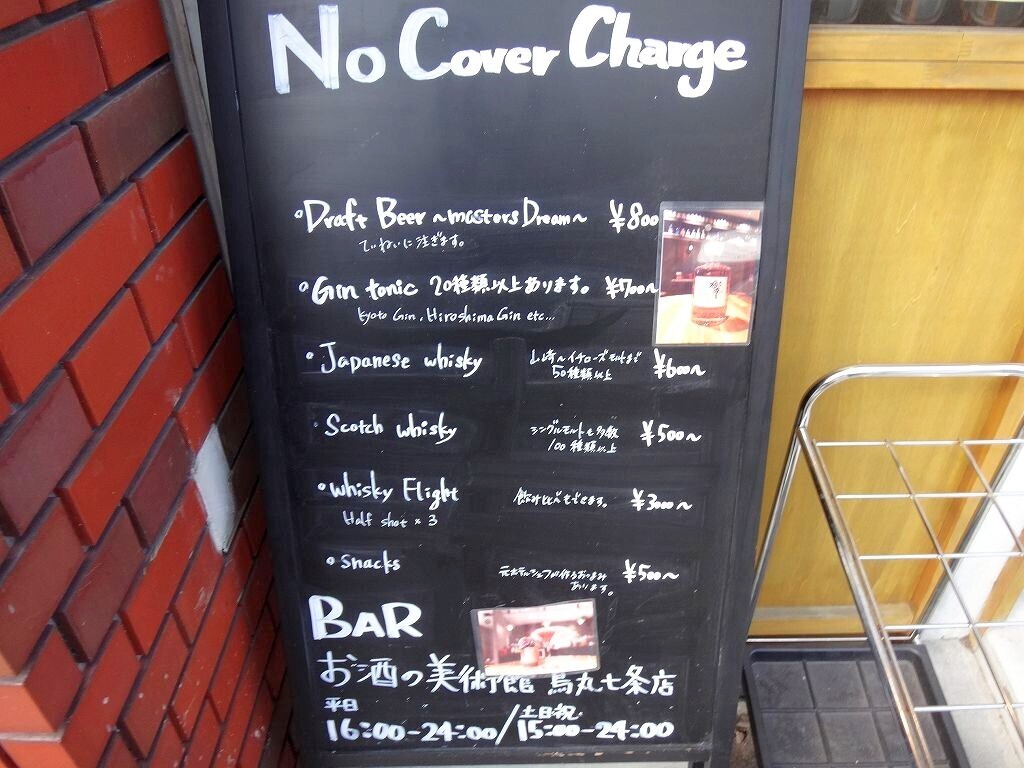 No Cover Charge
• Draft Beer ~masters Dream~ ¥800
ていねいに注ぎます。
• Gin tonic 20種類以上あります。 ¥700~
Kyoto Gin, Hiroshima Gin etc...
• Japanese whisky 山崎~イチローズモルトまで ¥600~
50種類以上
• Scotch whisky シングルモルトを多数 ¥500~
100種類以上
• Whisky Flight 飲み比べもできます。 ¥3000~
Half shot × 3
• Snacks 元ホテルシェフの作るおつまみ ¥500~
あります。
BAR
お酒の美術館 烏丸七条店
平日 土日祝
16:00-24:00/15:00-24:00